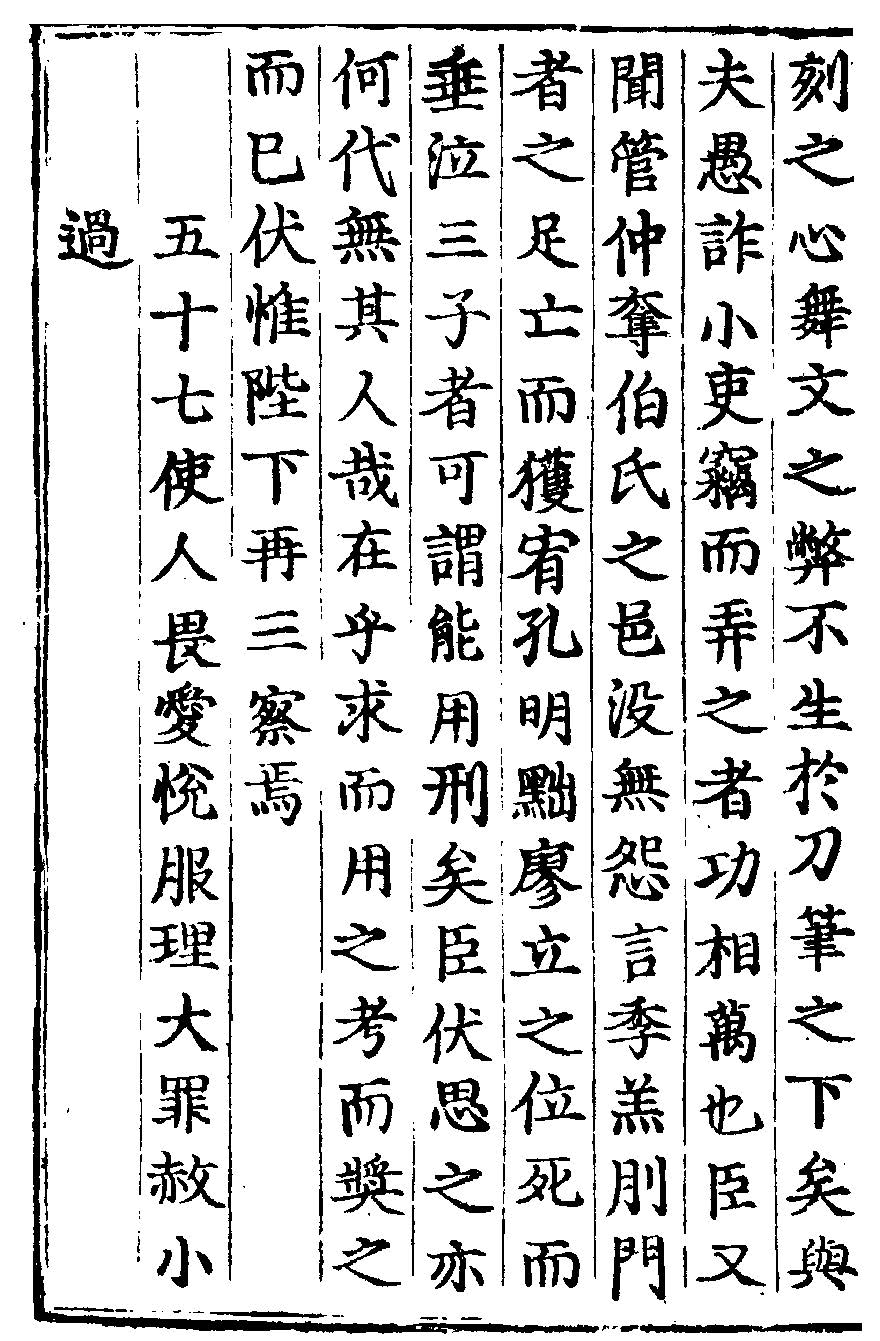 刻之心舞文之弊不生於刀筆之下矣與
夫愚詐小吏竊而弄之者功相萬也臣又
聞管仲奪伯氏之邑没無怨言季羔刖門
者之足亡而獲宥孔明黜廖立之位死而
垂泣三子者可謂能用刑矣臣伏思之亦
何代無其人哉在乎求而用之考而奬之
而巳伏惟陛下再三察焉
五十七使人畏愛悅服理大罪赦小
過